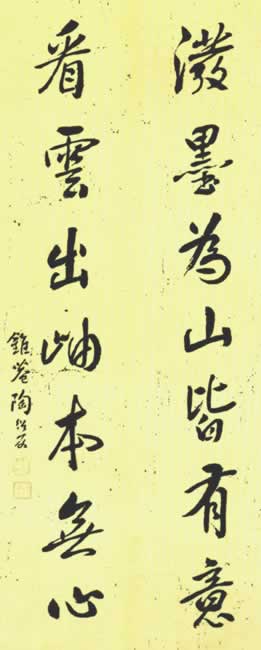 潑墨為山皆有意
看雲出岫本無心
錐菴陶